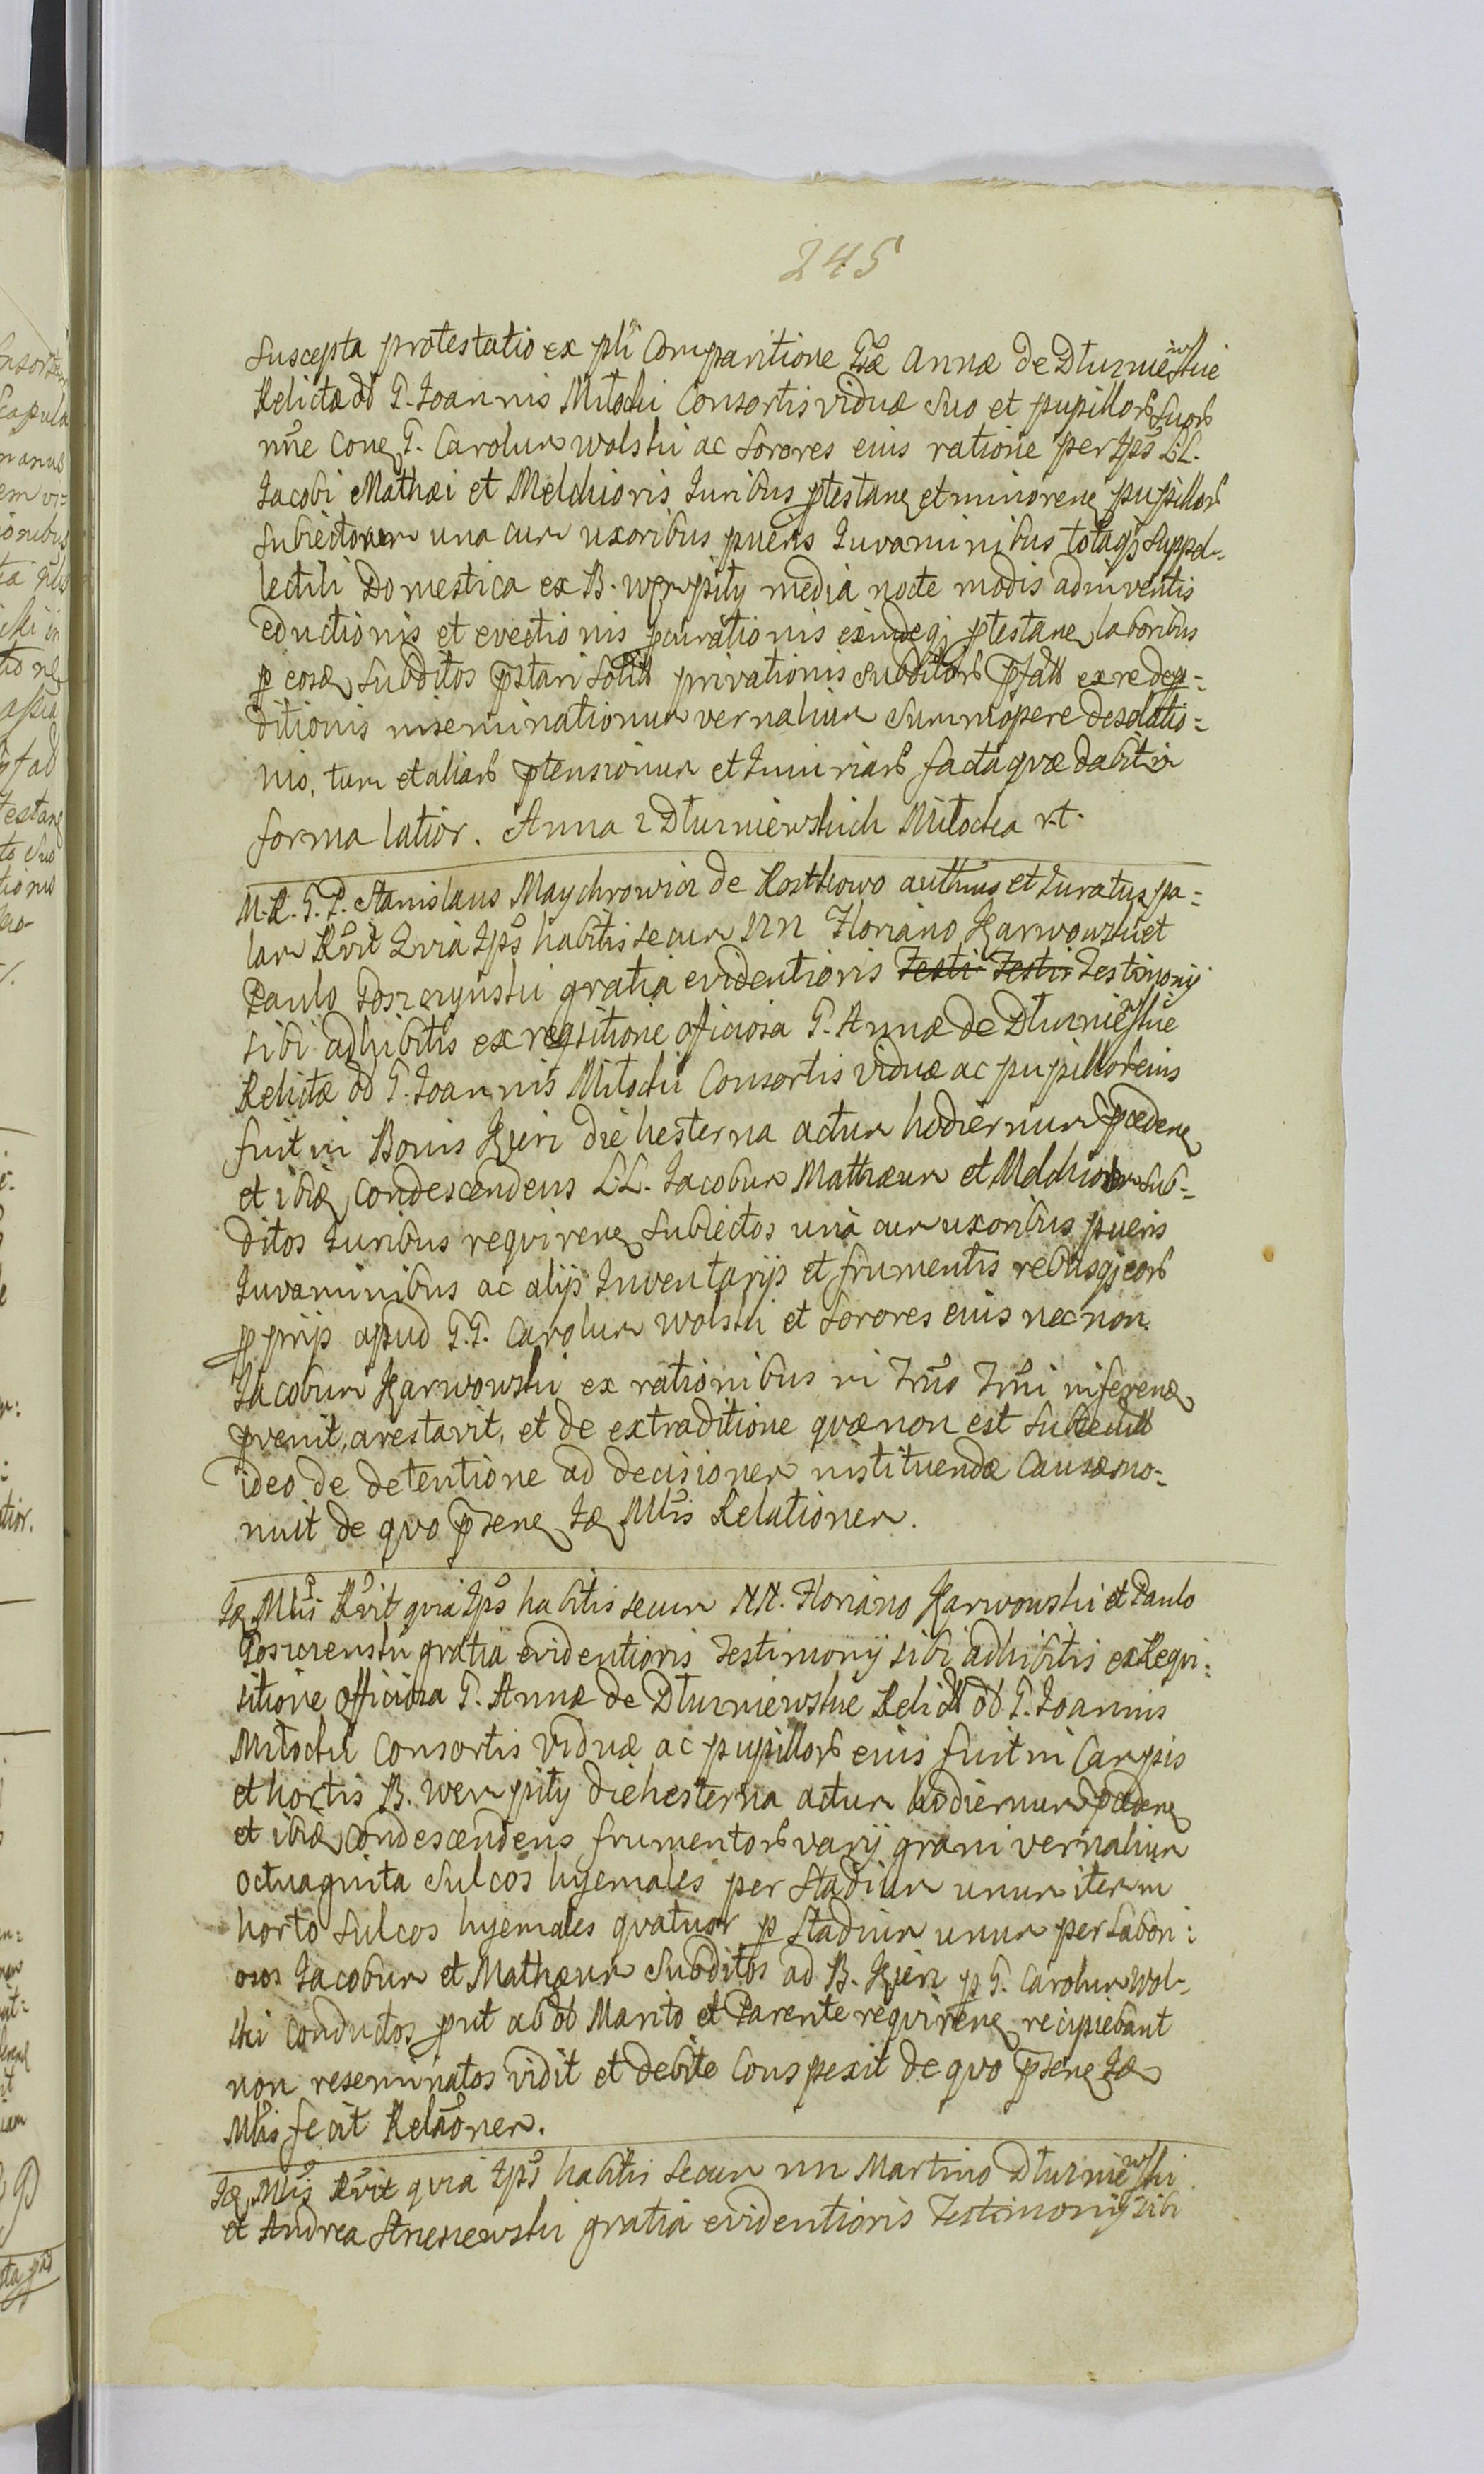 245
Suscepta protestatio ex pli Comparitione Gæ Annæ de Dłuzniewskie
Relictæ ol G. Joannis Miłochi Consortis viduæ suo et pupillor suor
nne Conq G. Carolum Wolski ac Sorores eius ratione per Ips LL.
Jacobi Mathæi et Melchioris Juribus ptestanq et minorenq pupillor
Subiectorum una cum uxoribus pueris Juvaminibus totaq suppel-
lectili Domestica ex B. Węrpity media nocte modis adinventis
eductionis et evectionis pcurationis exindeq ptestanq laboribus
p eosq Subditos pstari solit privationis Subditor pfatt ex re deq-
ditionis inseminationum vernalium Summopere desolatio-
nis, tum et aliar ptensionum et Injuriar facta quæ dabitur
forma latior. Anna z Dłuzniewskich Miłocka rt.
M. R. G. P. Stanislaus Maychrowicz de Kostkowo authus et Juratus pa-
lam Rvit Quia Ips habitis secum NN Floriano Karwowski et
Paulo Goszczynski gratia evidentioris Testi Testi Testimonij
sibi adhibitis ex reqsitione officiosa G. Annæ de Dłuzniewskie
Relictæ ol G. Joannis Miłochi Consortis viduæ ac pupillor eius
fuit in Bonis Kieri die hesterna actum hodiernum pcedenq
et ibiq condescendens LL. Jacobum Mathæum et Melchiorem Sub-
ditos Juribus requirenq subiectos una cum uxoribus pueris
Juvaminibus ac alijs Inventarijs et frumentis rebusq eor
pprijs apud G.G. Carolum Wolski et Sorores eius nec non
Jacobum Karwowski ex rationibus in Trno Trni inferenq
pvenit, arestavit, et de extraditione quæ non est subsecuta
ideo de detentione ad decisionem instituendæ Causæ mo-
nuit de quo psenq Iq Mlis Relationem.
Iq Mlis Rvit quia Ips habitis secum NN. Floriano Karwowski et Paulo
Goszczenski gratia evidentioris Testimonij sibi adhibitis ex Requi-
sitione officiosa G. Annæ de Dłuzniewskie Relictt ol G. Joannis
Miłochi Consortis viduæ ac pupillor eius fuit in Campis
et hortis B. Werpity die hesterna actum hodiernum pcedenq
et ibiq condescendens frumentor varij grani vernalium
octuaginta Sulcos hyemales per Stadium unum item in
horto Sulcos hyemales quatuor p Stadium unum per Labori-
osos Jacobum et Mathæum Subditos ad B. Kieri p G. Carolum Wol-
ski conductos put ab ol Marito et Parente requirenq recipiebant
non reseminatos vidit et debite Conspexit de quo psenq Iq
Mlis fecit Relaonem.
Iq Mlis Rvit quia Ips habitis secum NN Martino Dłuzniewski
et Andrea Strzeszewski gratia evidentioris Testimonij sibi